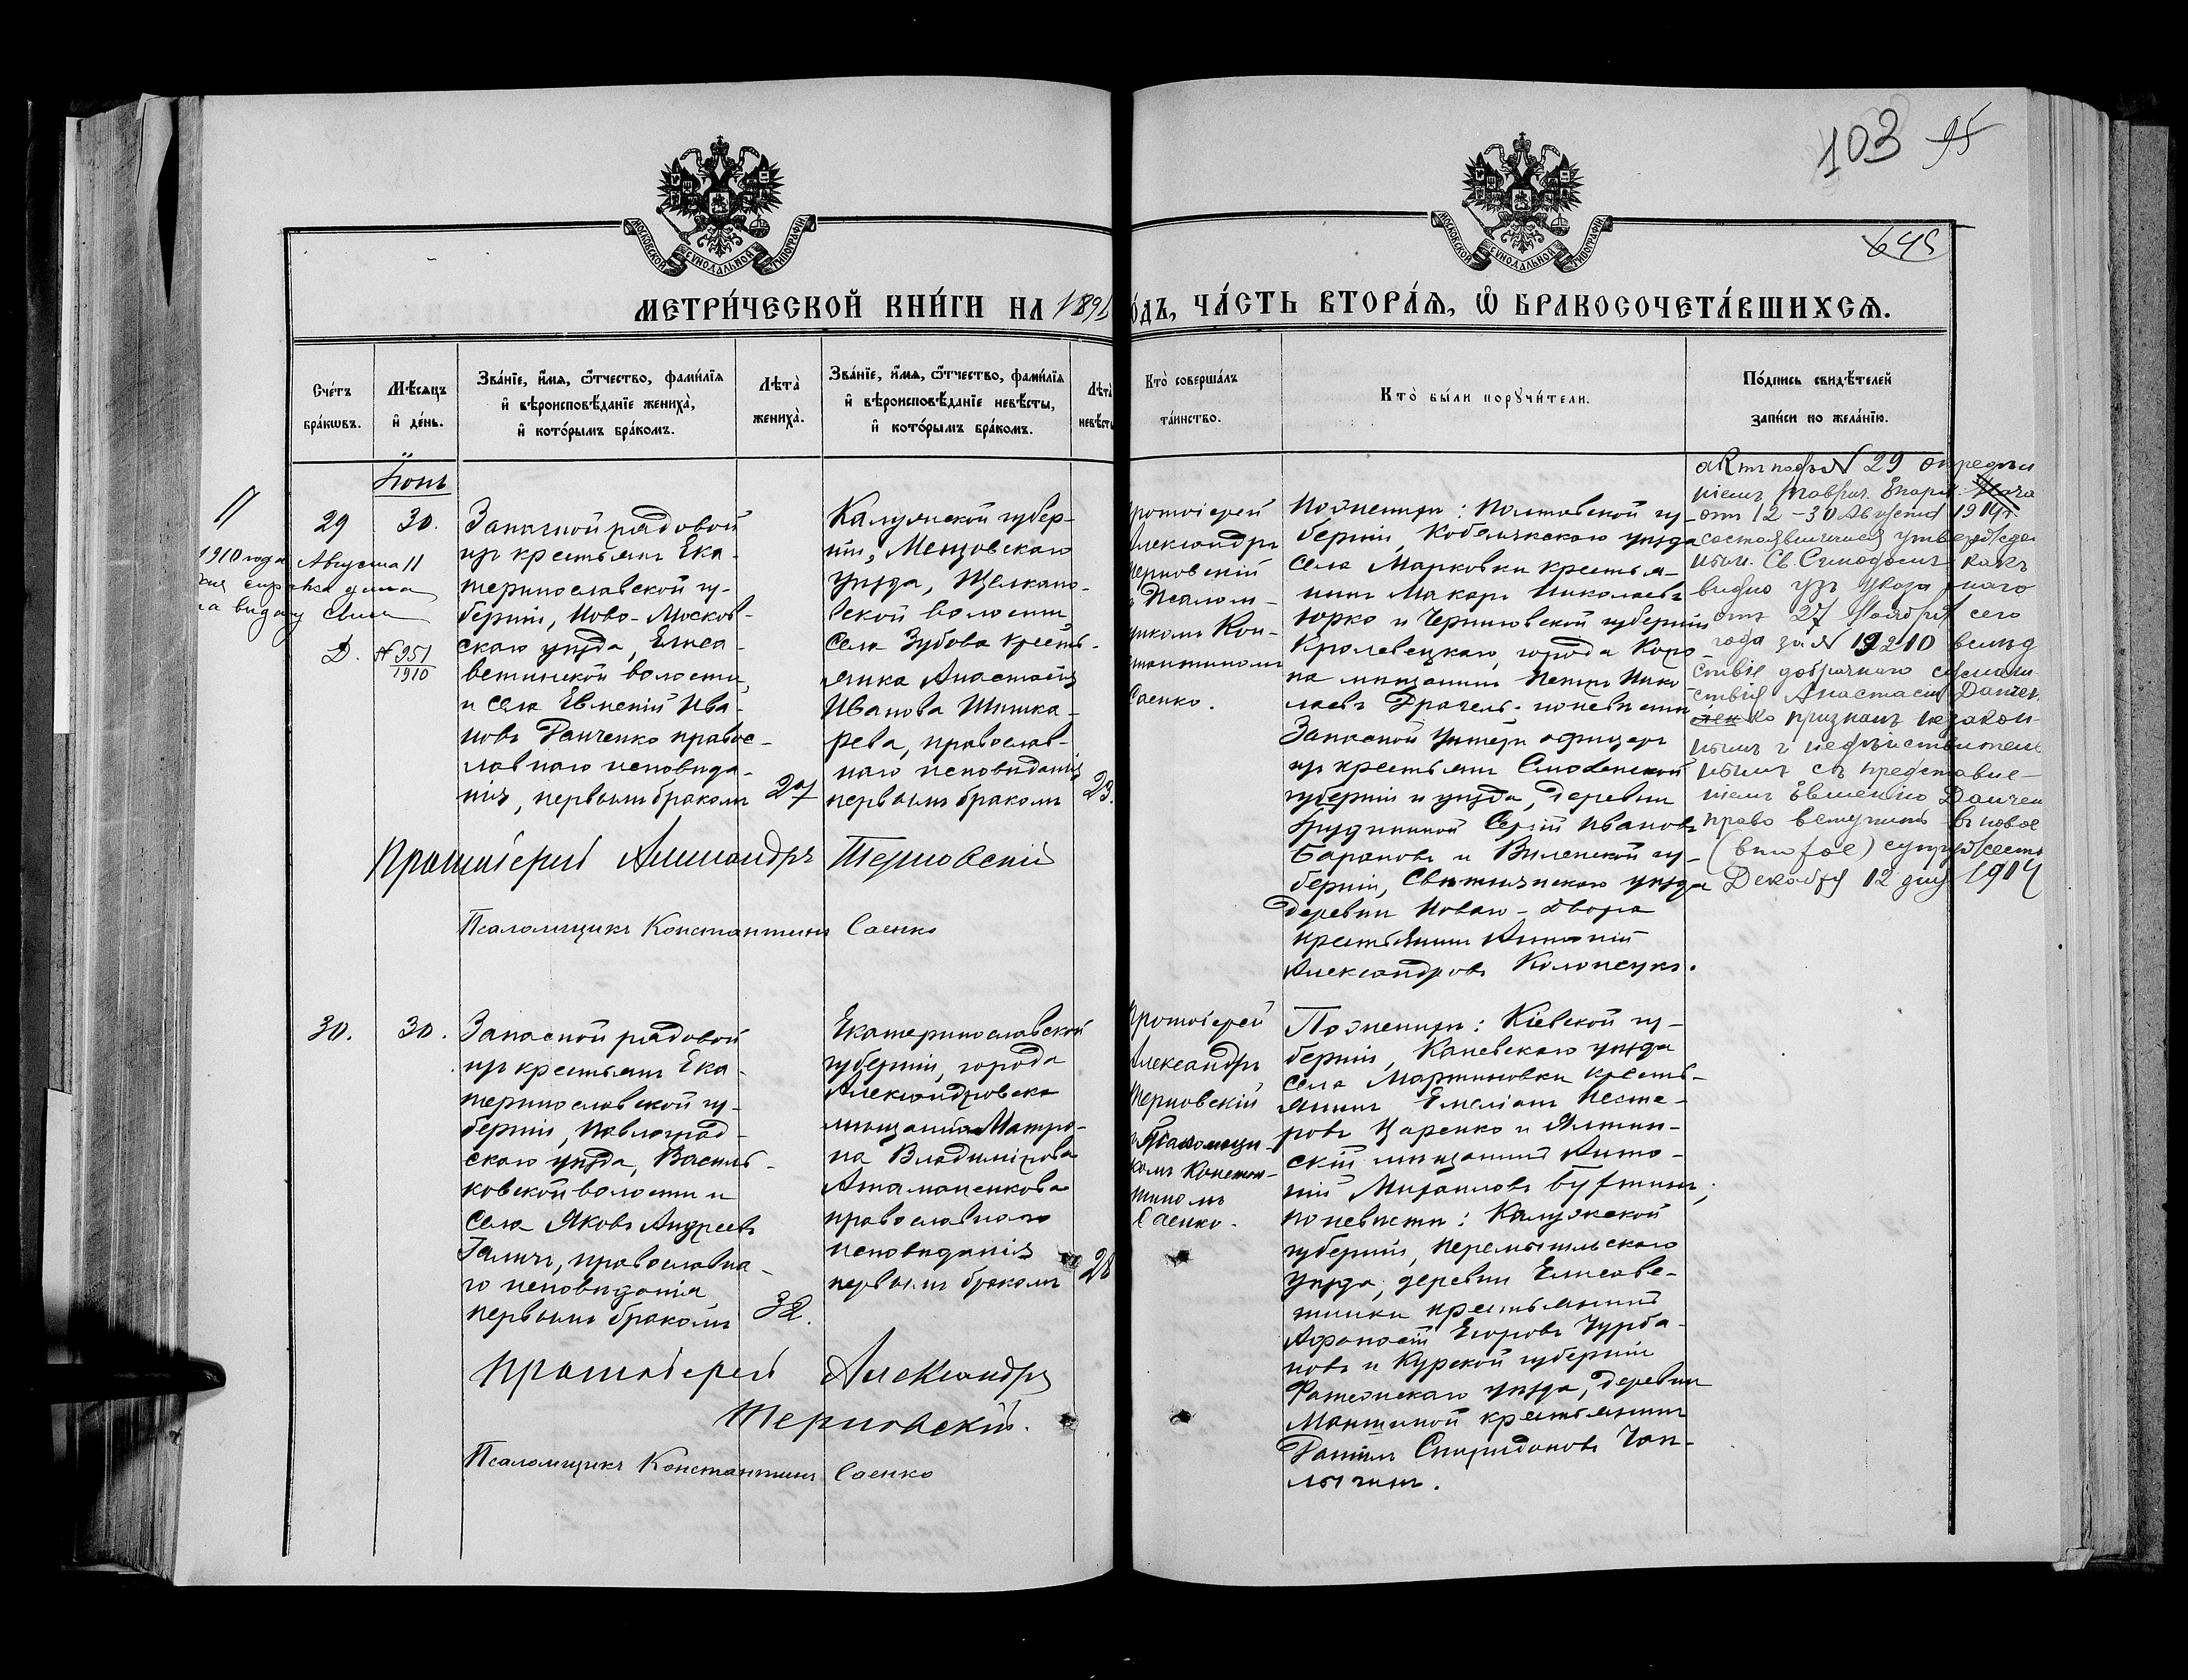 103 95
645
МОСКОВСКОЙ СѴНОДАЛЬНОЙ ТИПОГРАФІИ
МОСКОВСКОЙ СѴНОДАЛЬНОЙ ТИПОГРАФІИ
МЕТРИ́ЧЕСКОЙ КНИ́ГИ НА 189
ОДЪ, ЧА́СТЬ ВТОРА́Ѧ, Ѡ БРАКОСОЧЕТА́ВШИХСѦ.
Сче́тъ
бра́кѡвъ.
Мѣ́сѧцъ
и҆ де́нь.
Зва́нїе, и҆́мѧ, ѻ҆́тчество, фами́лїѧ
и҆ вѣроисповѣ́данїе жениха̀,
и҆ кото́рымъ бра́комъ.
Лѣта̀
жениха̀.
Зва́нїе, и҆́мѧ, ѻ҆́тчество, фами́лїѧ
и҆ вѣроисповѣ́данїе невѣ́сты,
и҆ кото́рымъ бра́комъ.
Лѣта
невѣсты
Кто̀ соверша́лъ
та́инство.
Кто̀ бы́ли порꙋчи́тели.
По́дпись свидѣ́телей
за́писи по жела́нїю.
Іюнь
29
30.
1910 года Августа 11
дня справка дана
на видачу Свид
Д. № 951
1910
Запасной рядовой
изъ крестьянъ Ека-
теринославской гу-
берніи, Ново-Москов-
скаго уѣзда, Елиса-
ветинской волости,
и села Евменій Ива-
новъ Данченко правос-
лавнаго исповѣда-
нія, первымъ бракомъ
27
Калужской губер-
ніи, Мещовскаго
уѣзда, Щелкано-
вской волости
села Зубова кресть-
янка Анастасія
Иванова Шишка-
рева, православ-
наго исповѣданія
первымъ бракомъ
23.
Протоіерей Александръ Терновскій
Псаломщикъ Константинъ Саенко
ротоіерей
Александръ
Терновскій
и Псалом-
щикомъ Кон-
стантиномъ
Саенко.
По женихѣ: Полтавской гу-
берніи, Кобелякскаго уѣзда
села Марковки крестья-
нинъ Макаръ Николаевъ
Юрко и Черниговской губерніи
Кролевецкаго, города Коро-
па мѣщанинъ Петръ Нико-
лаевъ Драгель. по невѣстѣ
Запасной Унтеръ офицеръ
изъ крестьянъ Смоленской
губерніи и уѣзда, деревни
Сергій Ивановъ
Барановъ и Виленской гу-
берніи, Свенцянскаго уѣзда
деревни Новаго-двора
крестьянинъ Антоній
Александровъ Колонецкъ.
актъ подъ № 29 опредѣл
ніемъ Таврич. Епарх.
отъ 12-30 Августа 1904 г.
состоявшимся утвержден
нымъ Св. Синодомъ какъ
видно изъ указа онаго
отъ 27 Ноября сего
года за № 12210 вслѣд
ствіе добрачнаго сумасше
ствія Анастасіи Данчен
ко признанъ незакон-
нымъ и недѣйствитель
нымъ съ предоставле-
ніемъ Евменію Данчен
право вступить въ новое
(второе) супружество
Декабря 12 дня 1904
30.
30.
Запасной рядовой
изъ крестьянъ Ека-
теринославской гу-
берніи, Павлоград-
скаго уѣзда, Василь-
ковской волости и
села Яковъ Андреевъ
Галичъ, православна-
го исповѣданія
первымъ бракомъ
32.
Екатеринославской
губерніи, города
Александровска
мѣщанка Матро-
на Владимірова
Атаманенкова
православнаго
исповѣданія
первымъ бракомъ
28
Протоіерей Александръ
Терновскій.
Псаломщикъ Константинъ Саенко
ротоіерей
Александръ
Терновскій
и Псаломщи-
комъ Констан-
тиномъ
Саенко.
По женихѣ: Кіевской гу-
берніи, Каневскаго уѣзда
села Мартиновки кресть-
янинъ Емеліанъ Несте-
ровъ Царенко и Ялтин-
скій мѣщанинъ Анто-
ній Михаиловъ Буртинъ;
по невѣстѣ: Калужской
губерніи, Перемышльскаго
уѣзда, деревни Елисаве-
тинки крестьянинъ
Афанасій Егоровъ Чурба-
новъ и Курской губерніи
Фатежскаго уѣзда, деревни
крестьянинъ
Даніилъ Спиридоновъ Чап-
лыгинъ.